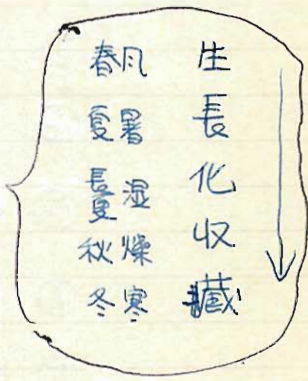 春风 生
夏暑 長
長夏 湿 化
秋燥 收
冬寒 藏